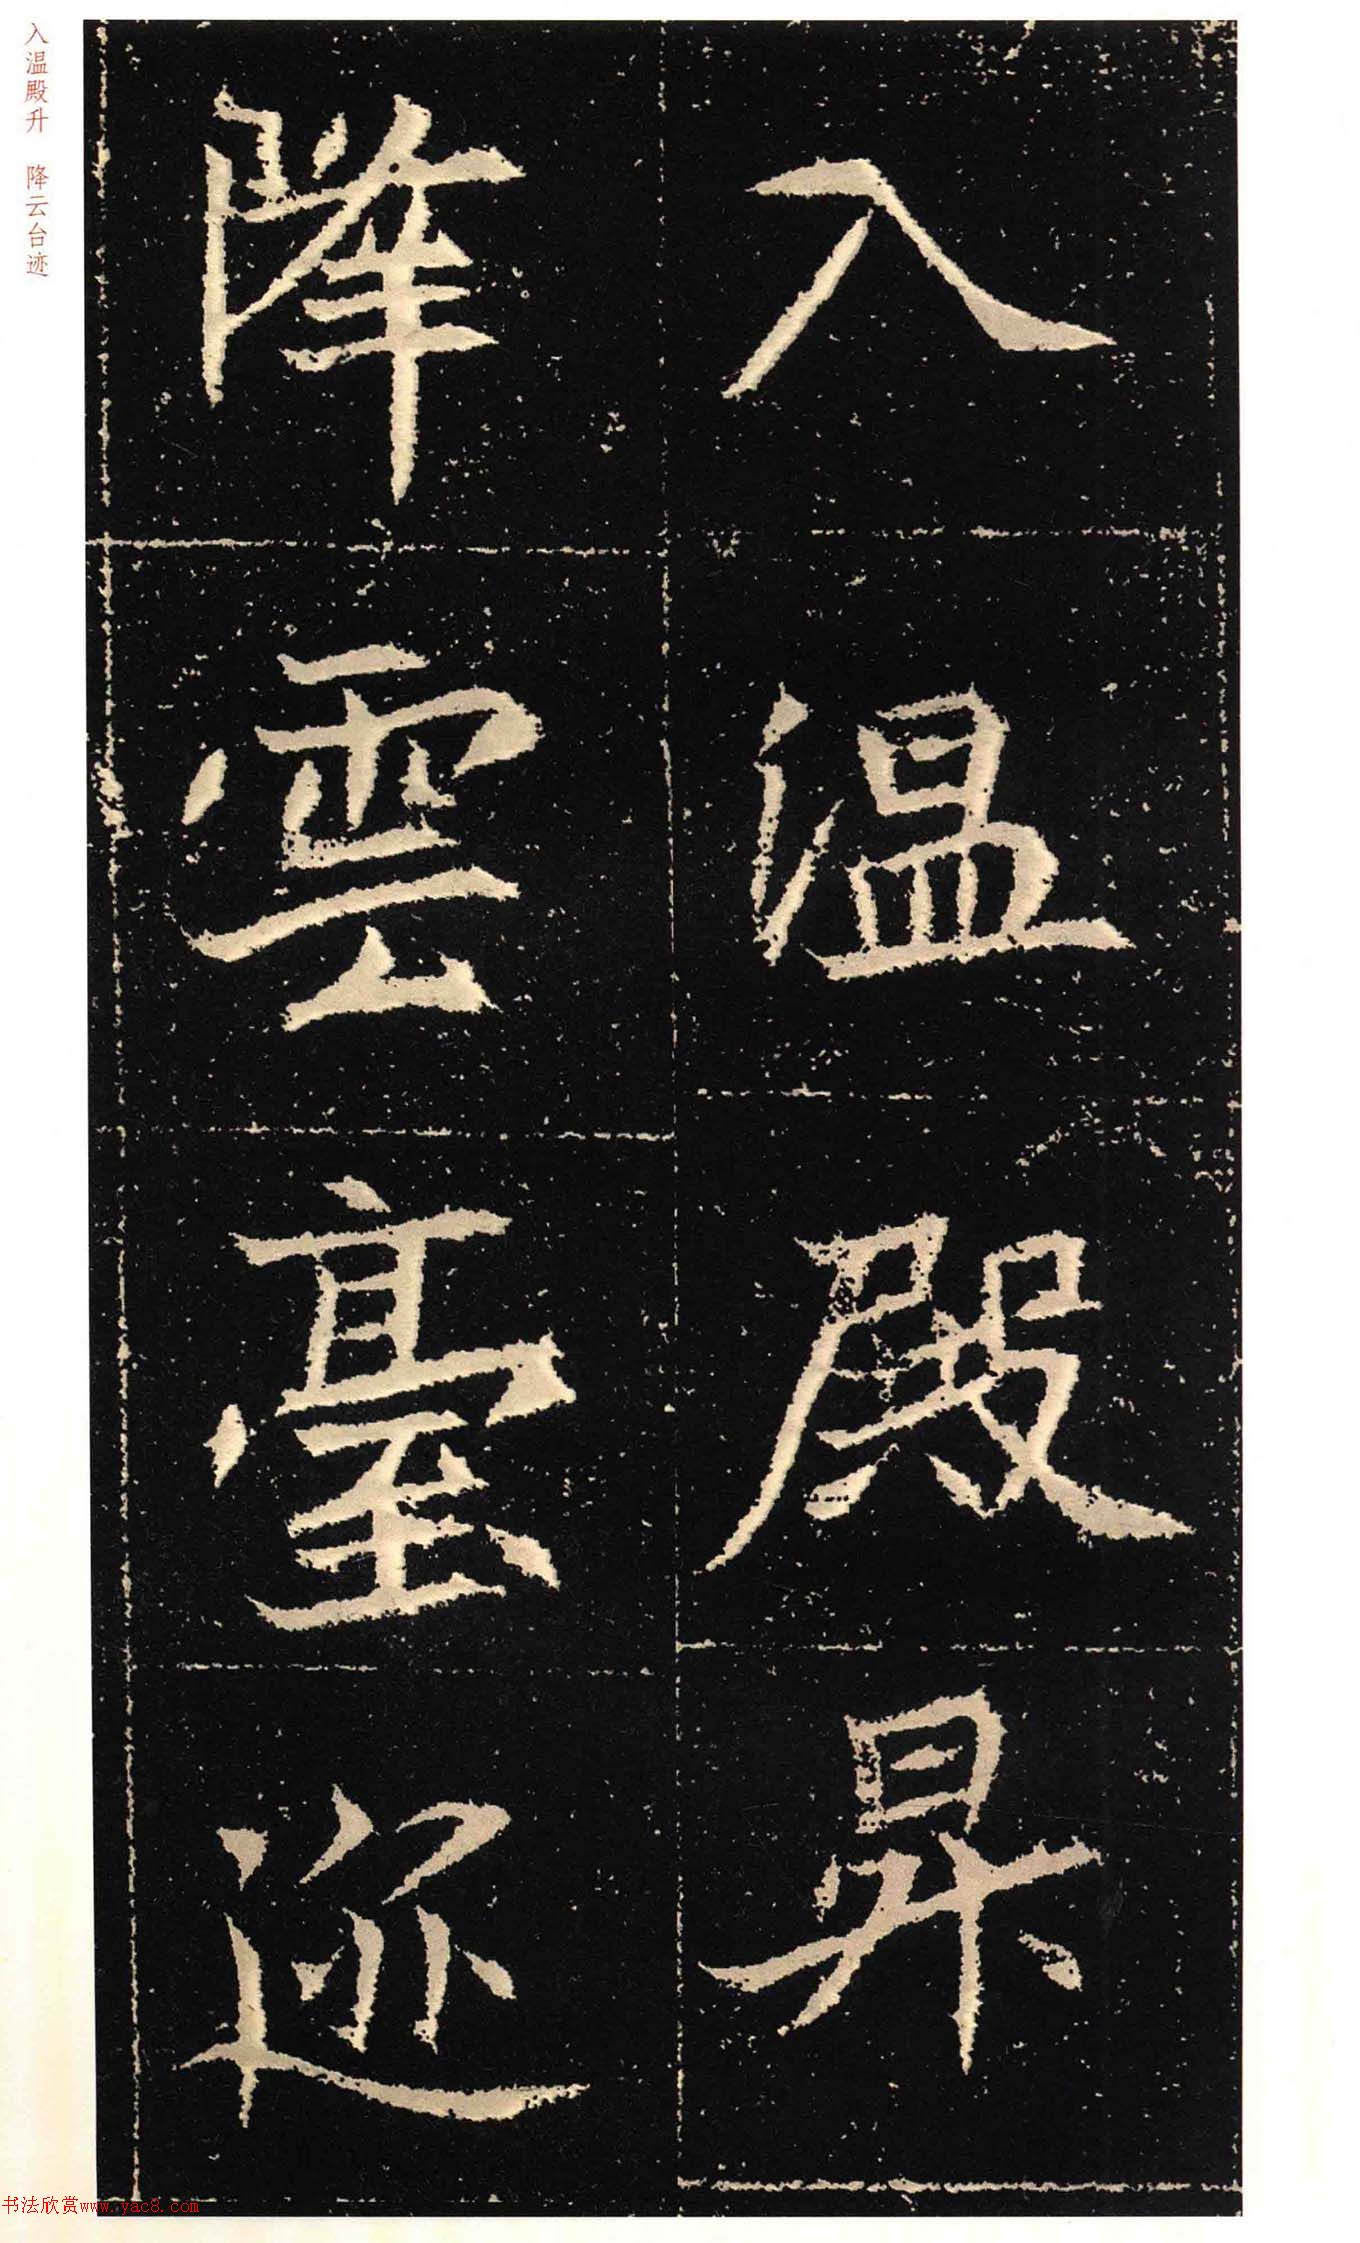 入温殿昇
降雲臺迹
入温殿升 降云台迹
书法欣赏www.yac8.com